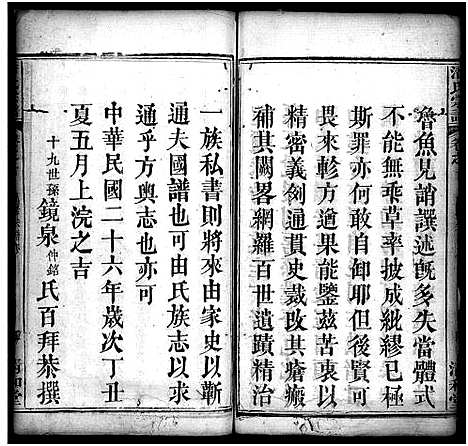 魯魚見誚譔述旣多失當體式
不能無乖草率披成紕繆已極
斯罪亦何敢自卸耶但後賢可
畏來軫方遒如能鑒茲苦衷以
精密義例通貫史裁改其瘡瘢
補其闕畧網難百世遺蹟精治
一族私書則將來由家史以蘄
通夫國譜也可由氏族志以求
通乎方輿志也亦可
中華民國二十六年歲次丁丑
夏五月上浣之吉
十九世孫鏡泉仲銘氏百拜恭撰